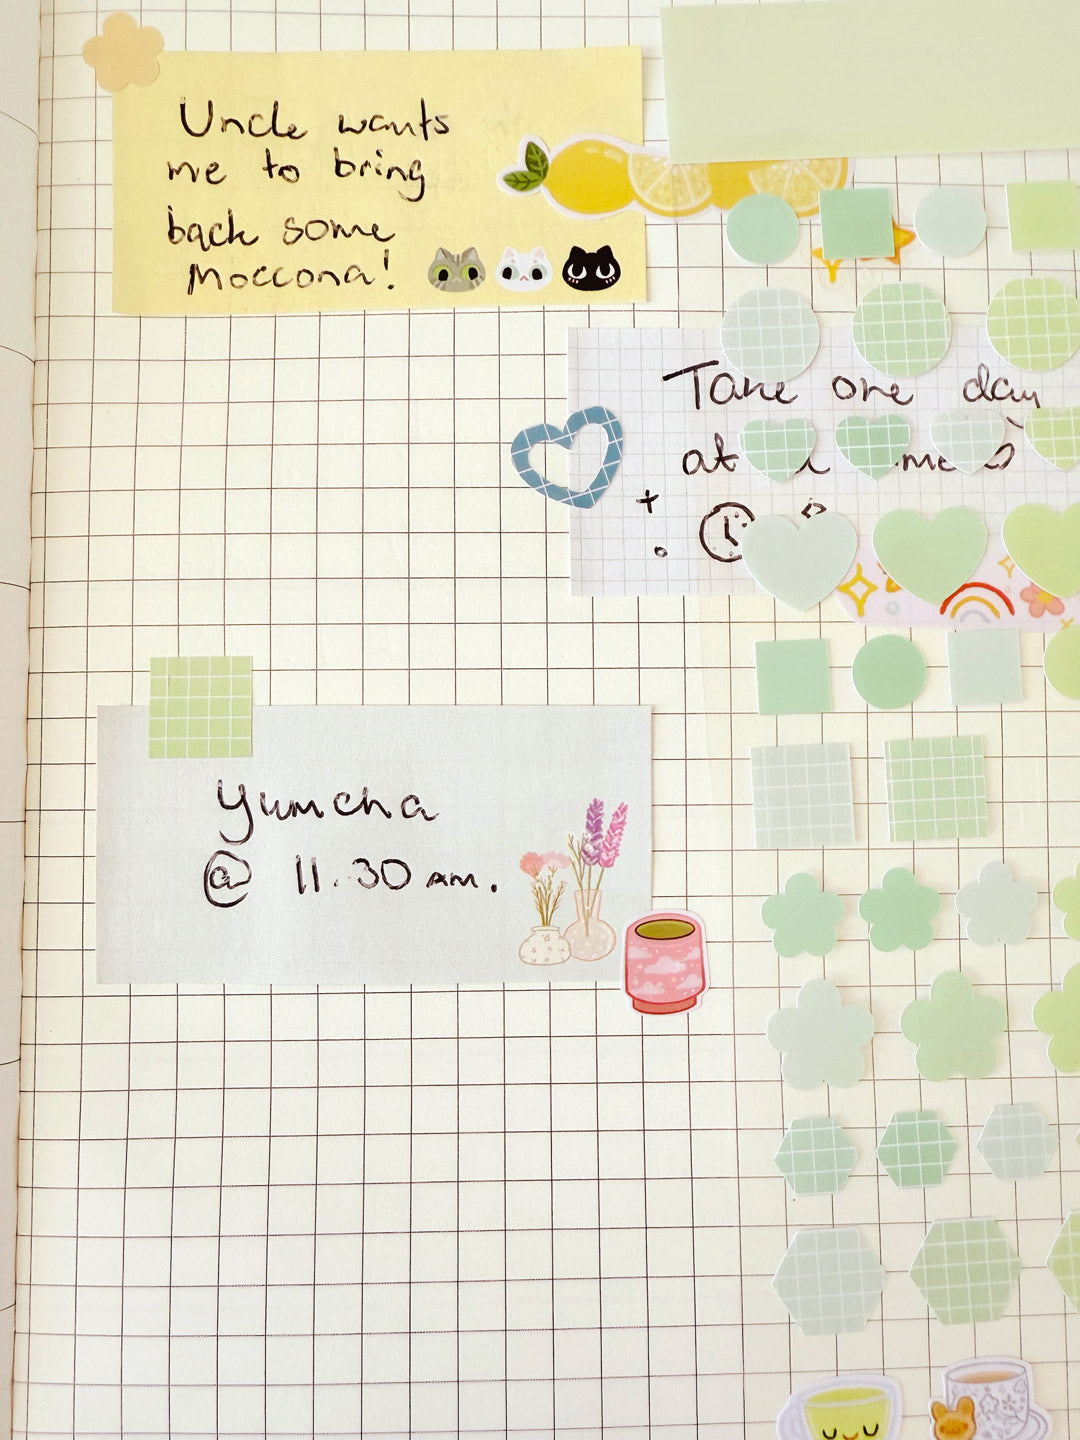 Uncle wants
me to bring
back some
Moccona!
Take one day
at
Yumcha
@ 11.30 AM.